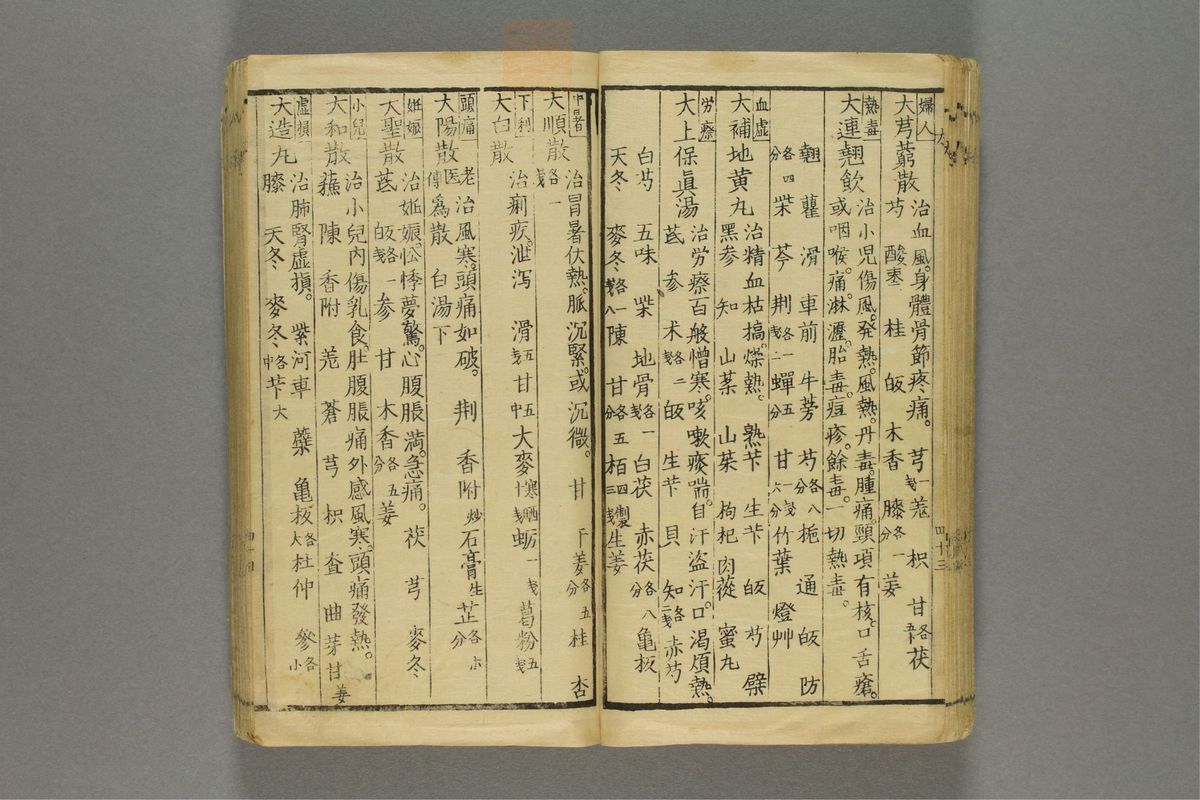 婦人
大芎藭散 治血風。身體骨節疼痛。 芎一戔 羗 枳 甘各五卜 茯
芍 酸棗 桂 皈 木香 膝各一分 姜
熱毒
大連翹飲 治小兒傷風。発熱。風熱。丹毒。腫痛。頸項有核。口舌瘡。
或咽喉。痛。淋瀝。胎毒。痘疹。餘毒。一切熱毒。
翹 蘿 滑 車前 牛蒡 芍各八分 梔 通 皈 防
各四分 柴 芩 荆各一戔二 蟬五分 甘一戔六分 竹葉 燈艸
血虛
大補地黄丸 治精血枯搞。燥熱。 熟芐 生芐 皈 芍 蘗
黑参 知 山薬 山茱 枸杞 肉蓯 蜜丸
労瘵
大上保眞湯 治労瘵百般憎寒。咳嗽痰喘。自汗盗汗。口渴煩熱。
芪 参 术各二戔 皈 生芐 貝 知各二戔 赤芍
白芍 五味 柴 地骨各一戔 白茯 赤茯各八分 亀板
天冬 麥冬各一戔八 陳 甘各五分 栢四製三戔 生姜
中暑
大順散 治冒暑伏熱。脈沉緊。或沉微。 甘 干姜各五分 桂 杏
各一戔
下利
大白散 治痢疾。泄瀉 滑五戔 甘五中 大麥寒晒十戔 蛎一戔 葛粉五戔
頭痛
大陽散 老医傳 治風寒。頭痛如破。 荆 香附炒 石膏生 芷各小分
爲散 白湯下
姙娠
大聖散 治姙娠。忪悸夢驚。心腹脹満。急痛。 茯 芎 麥冬
芪 皈各一戔 参 甘 木香各五分 姜
小兒
大和散 治小兒内傷乳食。肚腹脹痛外感風寒。頭痛發熱。
蘓 陳 香附 羌 蒼 芎 枳 査 曲 芽 甘 姜
虛損
大造丸 治肺腎虛損。 紫河車 蘗 亀板各大 杜仲 參各小
膝 天冬 麥冬各中 芐大
四十三